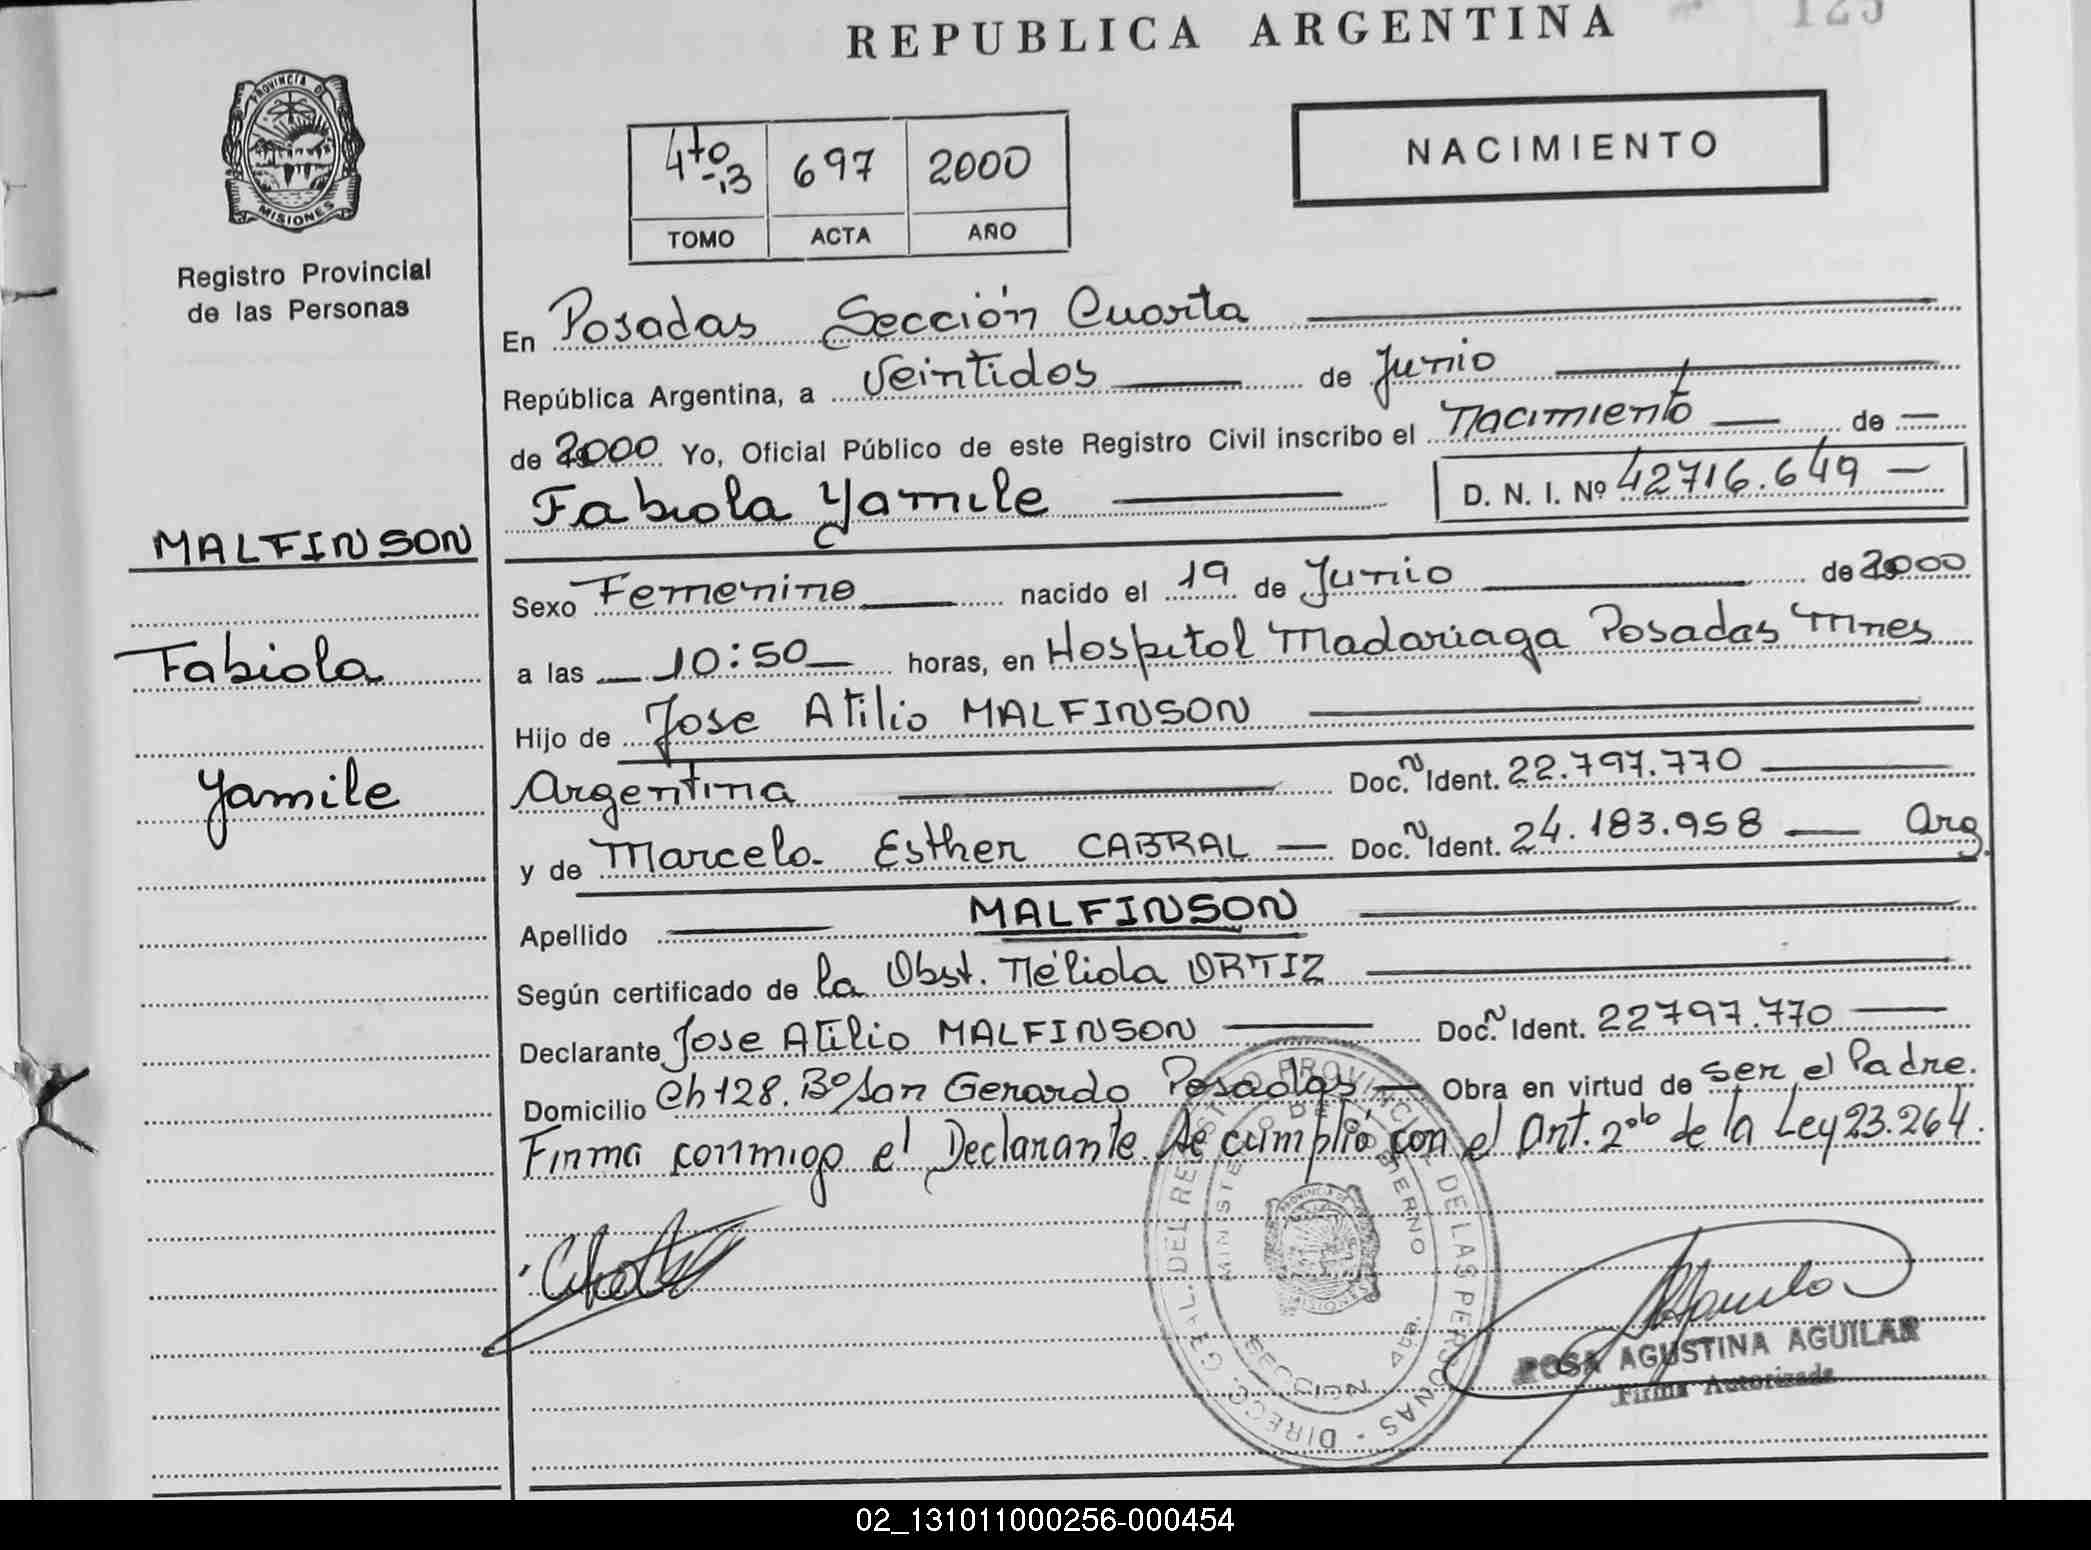 REPUBLICA ARGENTINA
125
PROVINCIA DE
MISIONES
Registro Provincial
de las Personas
4to -13 697 2000
TOMO ACTA AÑO
NACIMIENTO
En Posadas Sección Cuarta
República Argentina, a Veintidos de Junio
de 2000 Yo, Oficial Público de este Registro Civil inscribo el Nacimiento de
Fabiola Yamile D. N. I. Nº 42716.649
MALFINSON
Fabiola
Yamile
Sexo Femenino nacido el 19 de Junio de 2000
a las 10:50 horas, en Hospital Madariaga Posadas Mnes
Hijo de Jose Atilio MALFINSON
Argentina Doc. N Ident. 22.797.770
y de Marcela Esther CABRAL Doc. N Ident. 24.183.958 Arg.
Apellido MALFINSON
Según certificado de la Obst. Nélida ORTIZ
Declarante Jose Atilio MALFINSON Doc. N Ident. 22797.770
Domicilio Ch 128. Bº San Gerardo Posadas Obra en virtud de ser el Padre.
Firma conmigo el Declarante. Se cumplió con el Art. 2do de la Ley 23.264.
DIRECC. GRAL. DEL REGISTRO PROVINCIAL DE LAS PERSONAS
MINISTERIO DE GOBIERNO
PROVINCIA DE
MISIONES
SECCION 4ta.
ROSA AGUSTINA AGUILAR
Firma Autorizada
02_131011000256-000454